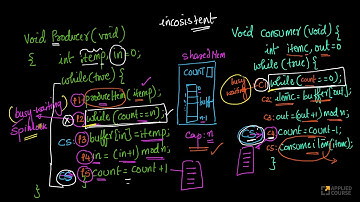 incosistent
void Producer(void)
{ int itemp, in=0;
while(true)
{
P1 produceItem(itemp);
busy-waiting
Spinlock
P2 while(count==n);
CS: P3 buffer[in]=itemp;
P4 in=(in+1) mod n;
CS P5 count=count+1;
}
}
shared Mem
count
buffer
Cap: n
void consumer(void) {
int itemc, out=0
while(true) {
busy
waiting
C1 while(count==0);
C2: itemc=buffer[out]
C3: out=(out+1) mod n;
CS C4 count=count-1;
C5: consumeItem(itemc)
}
APPLIED
COURSE